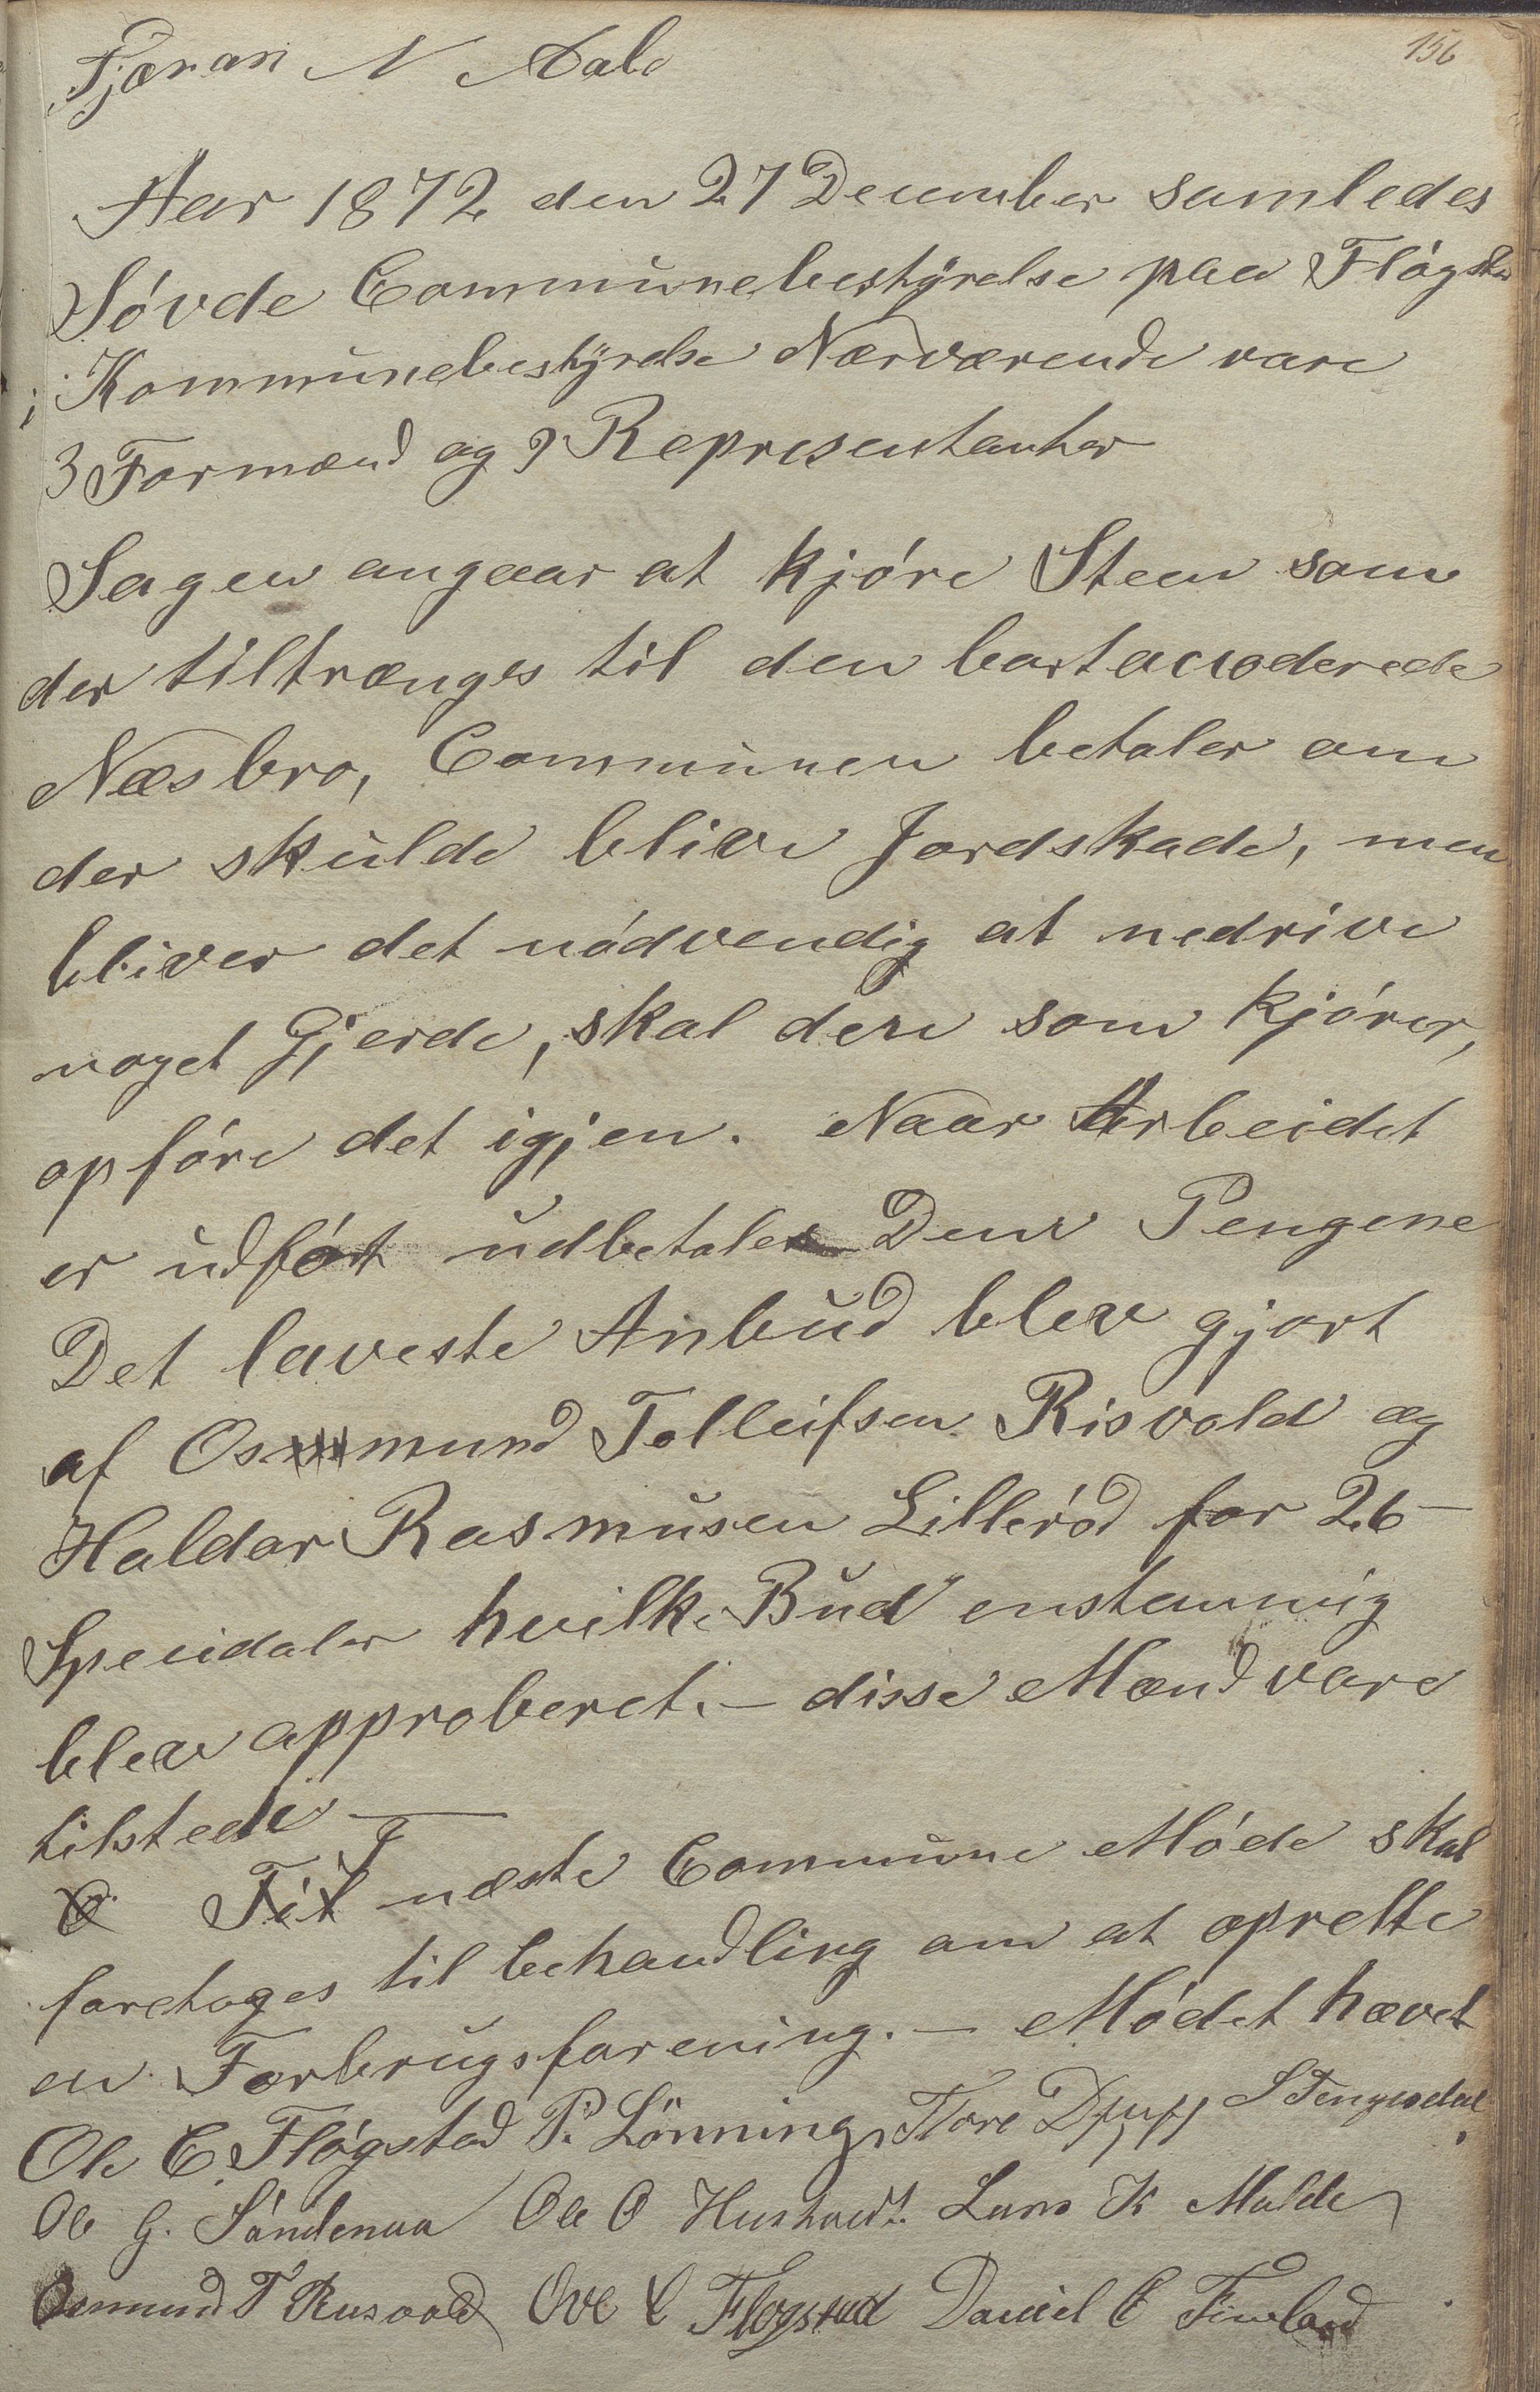 156
Aar 1872 den 27 December samledes
Sóvde Communebestyrelse paa Flógstad
i Kommunebestyrelse Nærværende vare
3 Formænd og 9 Representanter
Sagen angaar at kjóre Steen som
der tiltrænges til den bortaccoderede
Næsbro, Communen betaler om
der skulde blive Jordskade, men
bliver det nódvendig at nedrive
noget Gjerde, skal den som kjórer,
opfóre det igjen. Naar Arbeidet
er udfórt udbetales Dem Pengene
Det laveste Anbud blev gjort
af Osmund Tolleifsen Risvold og
Haldor Rasmusen Lilleród for 26 –
Speciedaler hvilke Bud enstemmig
blev approberet. – disse Mænd vare
tilstede –
I næste Commune Móde skal
foretages til behandling om at oprette
en Forbrugsforening. – Módet hævet
Ole C. Flógstad P. Lönning Tore S Tengesdal
Ole G. Sándenaa Ole O Hustvedt. Lars K Malde
Osmund T Risvold Ove C Flogstad Daniel C Finland